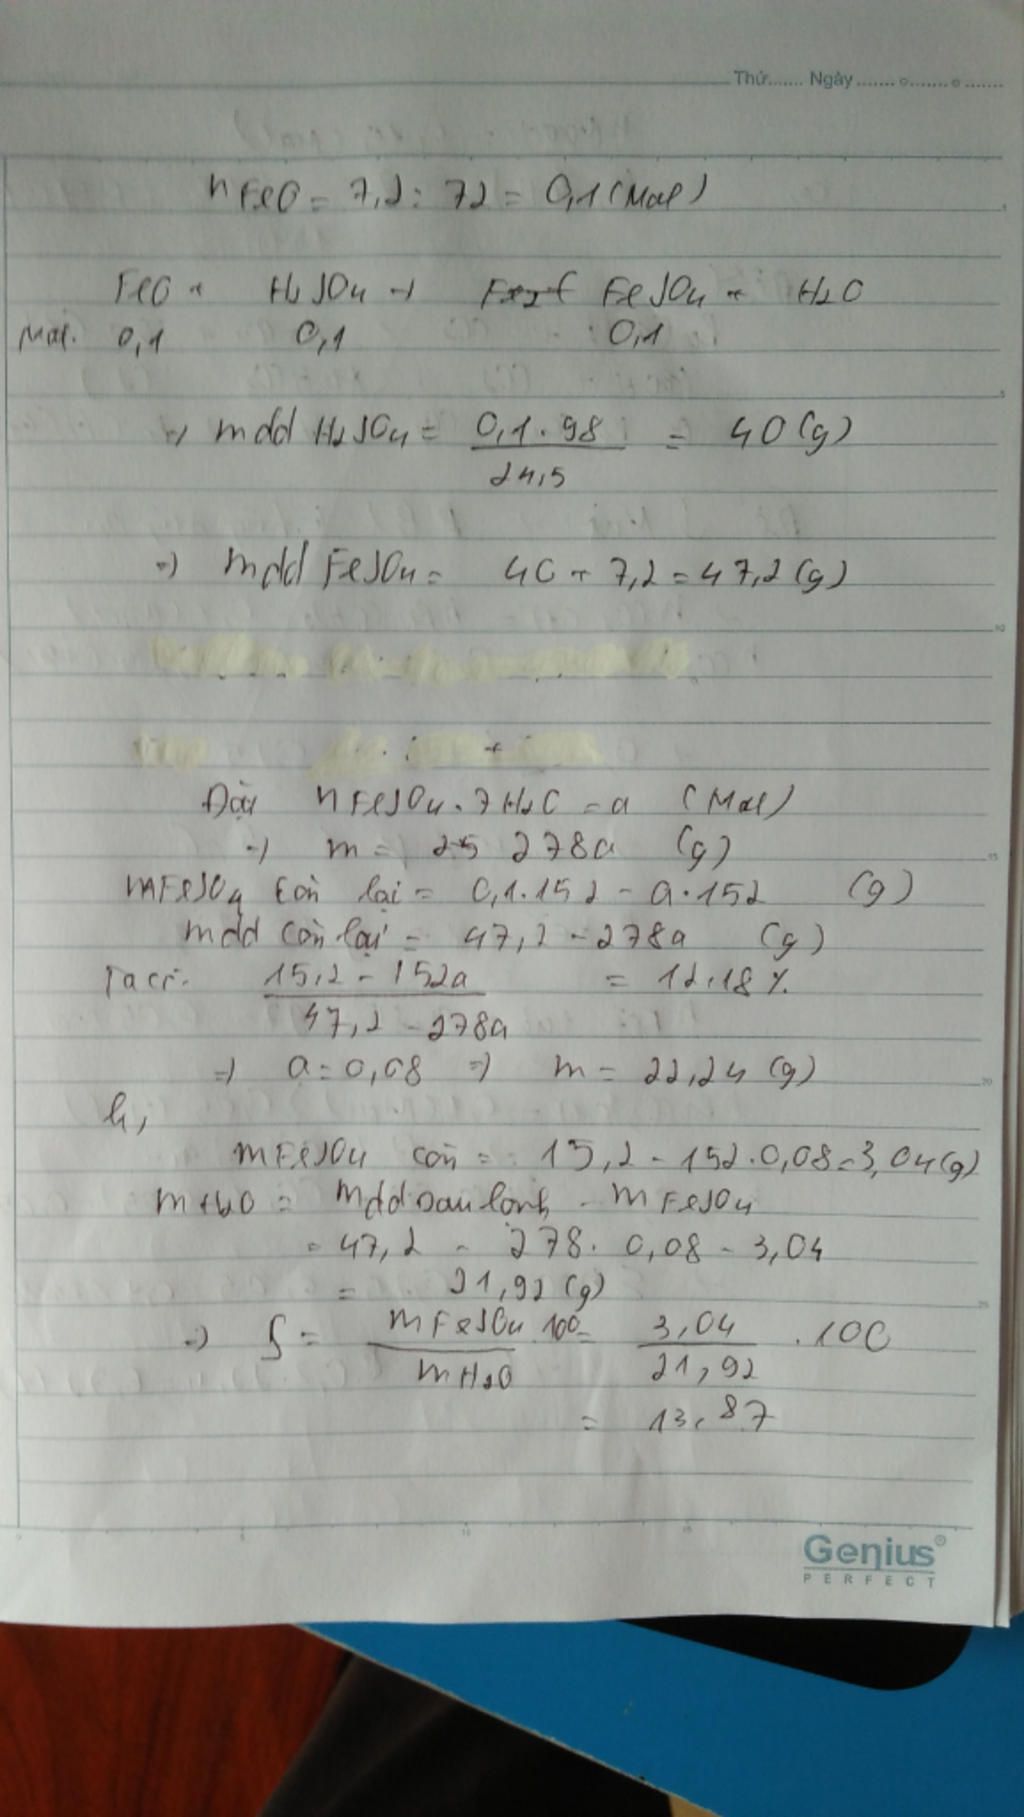 Thứ....... Ngày.......
nFeO = 7,2 : 72 = 0,1 (Mol)
FeO + H2SO4 → FeSO4 + H2O
Mol. 0,1 0,1 : 0,1
=> mdd H2SO4 = 0,1.98 / 24,5 = 40 (g)
=> mdd FeSO4 = 40 + 7,2 = 47,2 (g)
Đặt nFeSO4.7H2O = a (Mol)
=> m = 278a (g)
mFeSO4 còn lại = 0,1.152 - a.152 (g)
mdd còn lại = 47,2 - 278a (g)
Ta có: 15,2 - 152a / 47,2 - 278a = 12,18%
=> a = 0,08 => m = 22,24 (g)
b,
mFeSO4 còn = 15,2 - 152.0,08 = 3,04 (g)
mH2O = mdd sau - mFeSO4
= 47,2 - 278.0,08 - 3,04
= 21,92 (g)
=> S = mFeSO4 / mH2O .100 = 3,04 / 21,92 .100
= 13,87
Genius
PERFECT